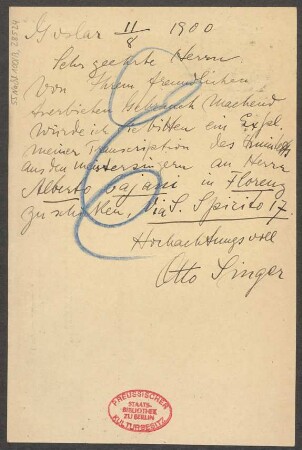 Goslar 11/8 1900
Sehr geehrte Herrn
Von Ihrem freundlichen
Anerbieten Gebrauch machend
würde ich Sie bitten ein Expl
meiner Transcription des
aus den Meistersingern an Herrn
Alberto Bajani in Florenz
zu schicken, Via S. Spirito 17.
Hochachtungsvoll
Otto Singer
PREUSSISCHER
STAATS-
BIBLIOTHEK
ZU BERLIN
KULTURBESITZ